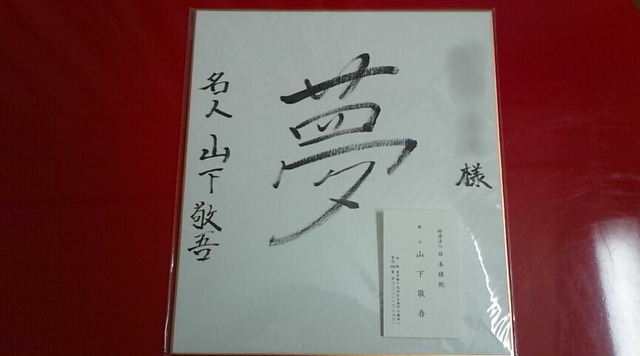 様
夢
名人 山下敬吾
財団法人 日本棋院
棋士
山下敬吾